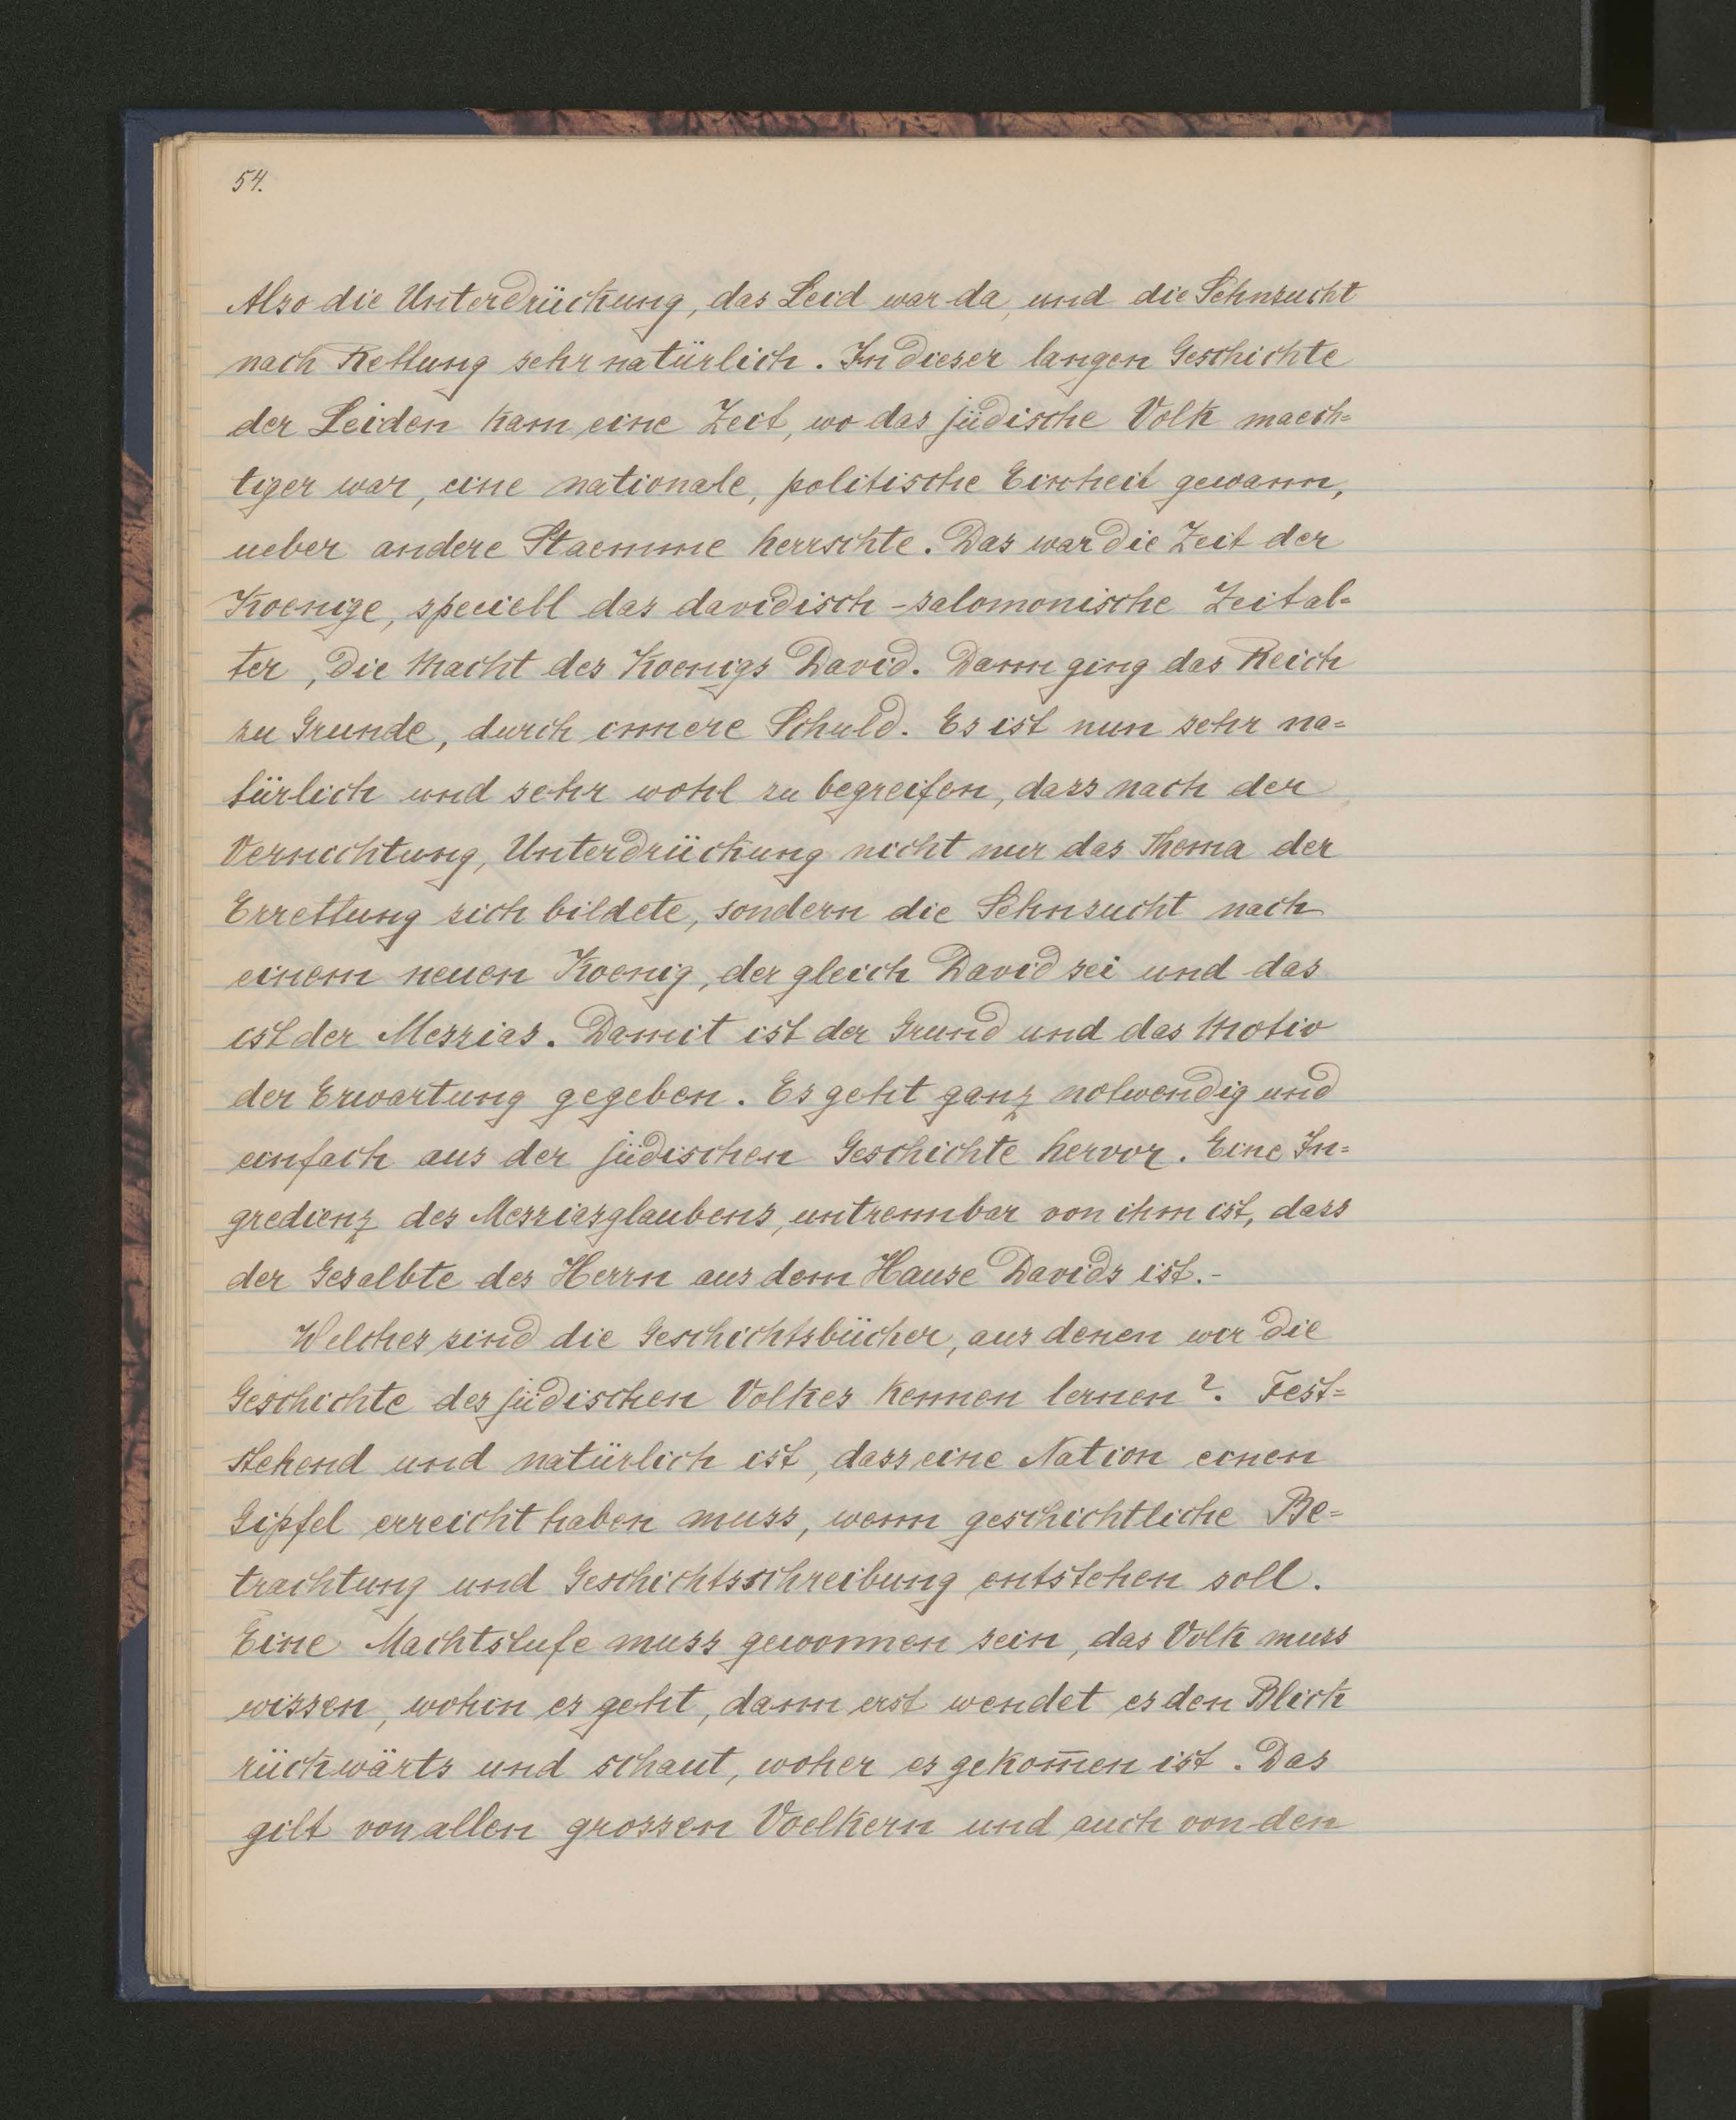 54.
Also die Unterdrückung, das Leid war da, und die Sehnsucht
nach Rettung sehr natürlich. In dieser langen Geschichte
der Leiden kam eine Zeit, wo das jüdische Volk maech=
tiger war, eine nationale, politische Einheit gewann,
ueber andere Staemme herrschte. Das war die Zeit der
Koenige, speciell das davidisch-salomonische Zeital=
ter, die Macht des Koenigs David. Dann ging das Reich
zu Grunde, durch innere Schuld. Es ist nun sehr na=
türlich und sehr wohl zu begreifen, dass nach der
Vernichtung, Unterdrückung nicht nur das Thema der
Errettung sich bildete, sondern die Sehnsucht nach
einem neuen Koenig, der gleich David sei und das
ist der Messias. Damit ist der Grund und das Motiv
der Erwartung gegeben. Es geht ganz notwendig und
einfach aus der jüdischen Geschichte hervor. Eine In=
gredienz des Messiasglaubens, untrennbar von ihm ist, dass
der Gesalbte des Herrn aus dem Hause Davids ist.-
Welches sind die Geschichtsbücher, aus denen wir die
Geschichte des jüdischen Volkes kennen lernen?. Fest=
stehend und natürlich ist, dass eine Nation einen
Gipfel erreicht haben muss, wenn geschichtliche Be=
trachtung und Geschichtsschreibung entstehen soll.
Eine Machtstufe muss gewonnen sein, das Volk muss
wissen, wohin es geht, dann erst wendet es den Blick
rückwärts und schaut, woher es gekom̄en ist. Das
gilt von allen grossen Voelkern und auch von den